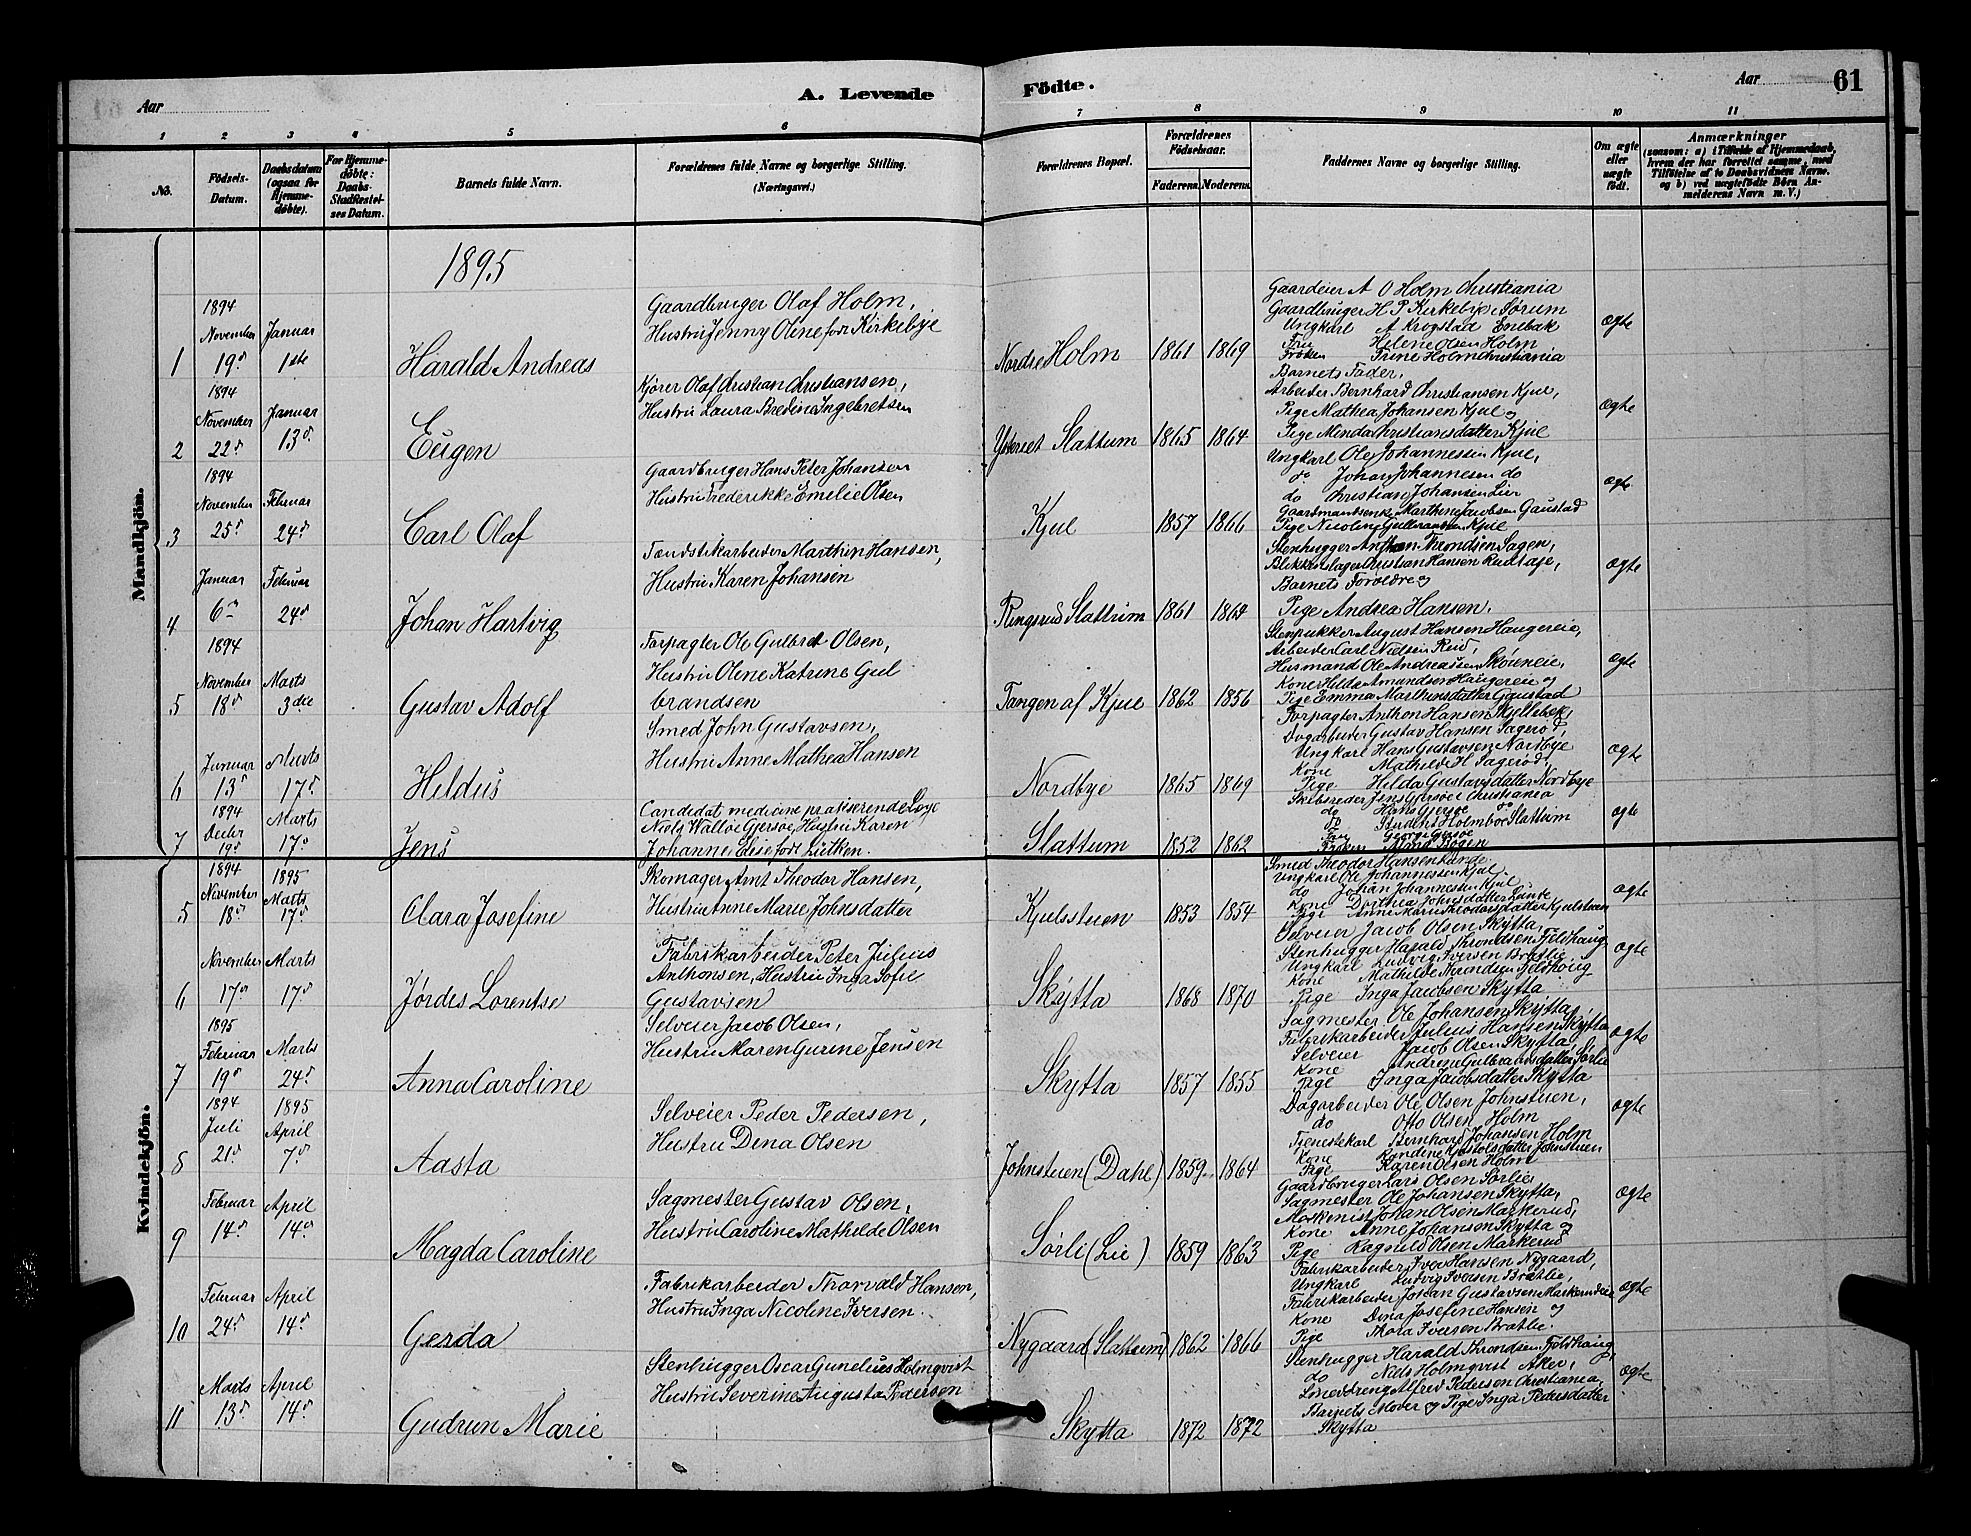 Aar
A. Levende
Födte.
Aar
61
1 2 3 4 5 6 7 8 9 10 11
No.
Födsels-Datum.
Daabsdatum (ogsaa for Hjemme-döbte).
For Hjemme-döbte: Daabs-Stadfæstelses Datum.
Barnets fulde Navn.
Forældrenes fulde Navne og borgerlige Stilling. (Næringsvei.)
Forældrenes Bopæl.
Forældrenes Födselsaar.
Faderens. Moderens.
Faddernes Navne og borgerlige Stilling.
Om ægte eller uægte födt.
Anmærkninger
(saasom: a) i Tilfælde af Hjemmedaab, hvem der har forrettet samme, med Tilföielse af to Daabsvidners Navne. og b) ved uægtefödte Börn Anmelderens Navn m. V.)
Mandkjön.
1895
1 1894 November 19d Januar 1ste
Harald Andreas
Gaardbruger Olaf Holm,
Hustru Jenny Oline født Kirkebye
Nordre Holm 1861 1869
Gaardeier A O Holm Christiania
Gaardbruger H P Kirkebye Sørum
Ungkarl A Krogstad Enebak
Fru Helene Olsen Holm
Frøken Trine Holm Christiania
Barnets Fader,
ægte
2 1894 November 22d Januar 13d
Eugen
Kjører Olaf Christian Christiansen,
Hustru Laura Bredine Ingebretsen
Yterset Slattum 1865 1864
Arbeider Bernhard Christiansen Kjul,
Pige Mathea Johansen Kjul og
Pige Minda Christiansdatter Kjul
ægte
3 1894 November 25d Februar 24d
Carl Olaf
Gaardbruger Hans Peter Johansen
Hustru Frederikke Emilie Olsen
Kjul 1857 1866
Ungkarl Ole Johannessen Kjul,
do Johan Johannesen do
do Christian Johansen Lier
Gaardmandsenke Marthine Jacobsen Gaustad
Pige Nicoline Gulbrandsen Kjul
ægte
4 Januar 6te Februar 24d
Johan Hartvig
Tændstikarbeider Marthin Hansen,
Hustru Karen Johansen
Ringsrud Slattum 1861 1862
Stenhugger Anthon Throndsen Sagen,
Blikkenslager Christian Hansen Rudtaje,
Barnets Forældre og
Pige Andrea Hansen.
ægte
5 1894 November 18d Marts 3die
Gustav Adolf
Forpagter Ole Gulbrat Olsen,
Hustru Oline Katrine Gul
brandsen
Tangen af Kjul 1862 1856
Stenpukker August Hansen Haugereie,
Arbeider Carl Nielsen Rud,
Husmand Ole Andreassen Skøieneie,
Kone Hilda Amundsen Haugereie og
Pige Emma Marthinsdatter Gaustad
ægte
6 Januar 13d Marts 17d
Hildus
Smed John Gustavsen,
Hustru Anne Mathea Hansen
Nordbye 1865 1869
Forpagter Anthon Hansen Kjellebek,
Dagarbeider Gustav Hansen Sagerød,
Ungkarl Hans Gustavsen Nordbye
Kone Mathilde H Sagerød,
Pige Hilda Gustavsdatter Nordbye
ægte
7 1894 Decbr 19d Marts 17d
Jens
Candidat medicine praktiserende Læge
Niels Walløe Gjersøe, Hustru Karen
Johanne Edse født Lütken.
Slattum 1852 1862
Skibsreder Jens Gjersøe Christiania
do Hans Gjersøe do
do Student Holmboe Slattum
Fru Georgi Gjersøe
Frøken
ægte
Kvindekjön.
5 1894 November 18d 1895 Marts 17d
Clara Josefine
Skomager Arnt Theodor Hansen,
Hustru Anne Marie Johnsdatter
Kjulsstuen 1853 1854
Smed Theodor Hansen Lunde,
Ungkarl Ole Johannessen Kjul,
do Johan Johannesen Kjul
Kone Dorthea Johnsdatter Lunde
Pige Anne Marie Theodorsdatter Kjulstuen
ægte
6 November 17d Marts 17d
Jørdes Lorentse
Fabrikarbeider Peter Julius
Anthonsen, Hustru Inga Sofie
Gustavsen
Skytta 1868 1870
Selveier Jacob Olsen Skytta,
Stenhugger Harald Throndsen Fjeldhaug
Ungkarl Ludvig Iversen Bratlie
Kone Mathilde Throndsen Fjeldhaug
Pige Inga Jacobsen Skytta
ægte
7 1895 Februar 19d Marts 24d
Anna Caroline
Selveier Jacob Olsen,
Hustru Maren Gurine Jensen
Skytta 1857 1855
Sagmester Ole Johansen Skytta,
Fabrikarbeider Julius Hansen Skytta
Selveier Jacob Olsen Skytta,
Kone Andrine Gulbrandsdatter Sørlie
Pige Inga Jacobsdatter Skytta
ægte
8 1894 Juli 21d 1895 April 7d
Aasta
Selveier Peder Pedersen,
Hustru Dina Olsen
Johnstuen (Dahl) 1859 1864
Dagarbeider Ole Olsen Johnstuen,
do Otto Olsen Holm
Tjenestekarl Bernhard Johansen Holm
Kone Randine Kjostolsdatter Johnstuen
Pige Karen Olsen Holm
ægte
9 Februar 14d April 14d
Magda Caroline
Sagmester Gustav Olsen,
Hustru Caroline Mathilde Olsen
Sørli (Lie) 1859 1863
Gaardbruger Lars Olsen Sørlie,
Sagmester Ole Johansen Skytta,
Maskinist Johan Olsen Markerud,
Kone Anne Johansen Skytta og
Pige Ragnild Olsen Markerud
ægte
10 Februar 24d April 14d
Gerda
Fabrikarbeider Thorvald Hansen,
Hustru Inga Nicoline Iversen.
Nygaard (Slattum) 1862 1866
Fabrikarbeider Iver Hansen Nygaard,
Ungkarl Ludvig Iversen Bratlie,
Fabrikarbeider Johan Gustavsen Markerudeie
Kone Dina Josefine Hansen og
Pige Thora Iversen Bratlie.
ægte
11 Marts 13d April 14d
Gudrun Marie
Stenhugger Oscar Gunelius Holmqvist
Hustru Severine Augusta Pedersen
Skytta 1872 1872
Stenhugger Harald Throndsen Fjeldhaug,
do Niels Holmqvist Aker,
Smeddreng Alfred Pedersen Christiania,
Barnets Moder og Pige Inga Pedersdatter
Skytta
ægte